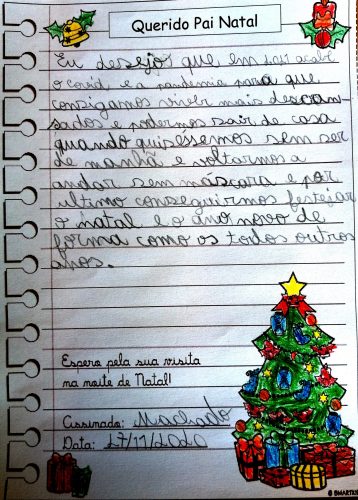 Querido Pai Natal
Eu desejo que em 2021 acabe
o covid e a pandemia para que
consigamos viver mais descan-
sados e podermos sair de casa
quando quiséssemos sem ser
de manhã e voltarmos a
andar sem máscara e por
ultimo conseguirmos festejar
o natal e o ano novo de
forma como os todos outros
anos.
Espero pela sua visita
na noite de Natal!
Assinado: Machado
Data: 27/11/2020